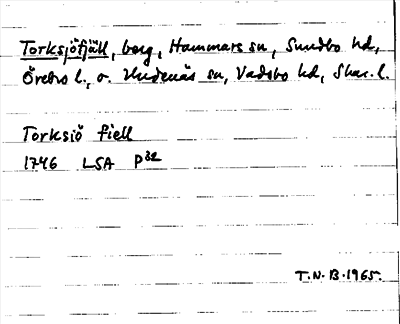 Torksjöfjäll, berg, Hammars sn, Sundbo hd,
Örebro l., o. Undenäs sn, Vadsbo hd, Skar. l.
Torksiö fiell
1746 LSA P32
T.N.B. 1965.